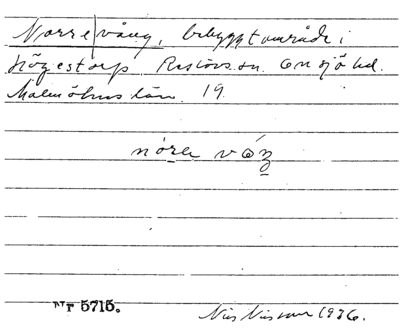 Norre|vång, bebyggt område i
Högestorp. Röstånga sn. Onsjö hd.
Malmöhus län. 19
nórə vóŋ
Nr 5715.
Nils Nilsson 1936.